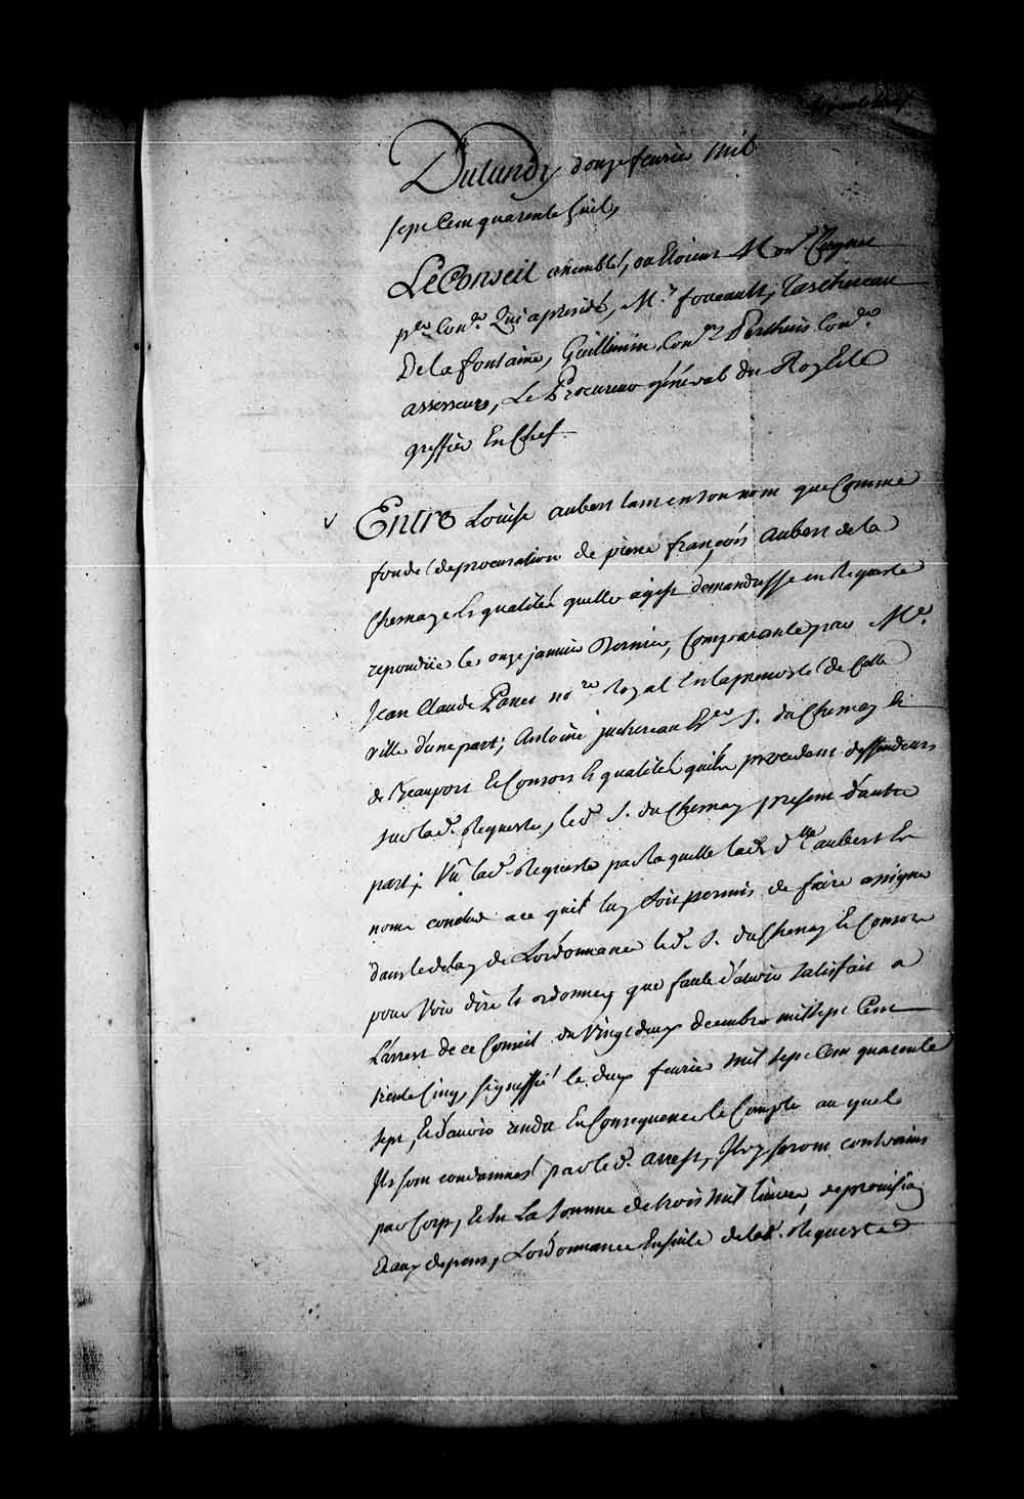 Du lundy douze feurier Mil
sept Cent quarente huit,
Le Conseil assemblé, ou Etoient Mons.r Cugnet
p.er Con.er Qui a presidé, M.rs foucault, Taschereau
De la fontaine, Guillimin Con.ers Perthuis Con.er
assesseur, Le Procureur général du Roy Et le
greffier En Chef.
Entre Louise aubert tant en son nom que Comme
fondé de procuration de pierre françois aubert de la
Chenaye Es qualités quelle agist demanderesse en Requeste
repondüe le onze janvier Dernier, Comparante par M.e
Jean Claude Panet no.re Royal En la prevosté de Cette
ville d'une part; Antoine juchereau Ec.er S. du Chesnay Et
de Beauport Et Consors Es qualités quils procedent deffendeurs
sur lad. Requeste, led. S. du Chesnay present d'autre
part; Vû lad. Requeste par laquelle lad. d.lle aubert En
nom conclud a ce quil luy soit permis de faire assigner
dans le delay de Lordonnance led. S. du Chesnay Et Consors
pour Voir dire Et ordonner que faute d'avoir satisfait a
L'arrest de ce Conseil du Vingt deux decembre mil sept Cent
trente Cinq, signiffié le deux feurier Mil sept Cent quarente
sept, Et d'avoir rendu En Consequence le Compte au quel
Ils sont condamnés par led. arrest, Ils y seront contraints
par Corps, Et En La somme de trois Mil livres de provision
Et aux depens, Lordonnance Ensuite de lad. Requeste